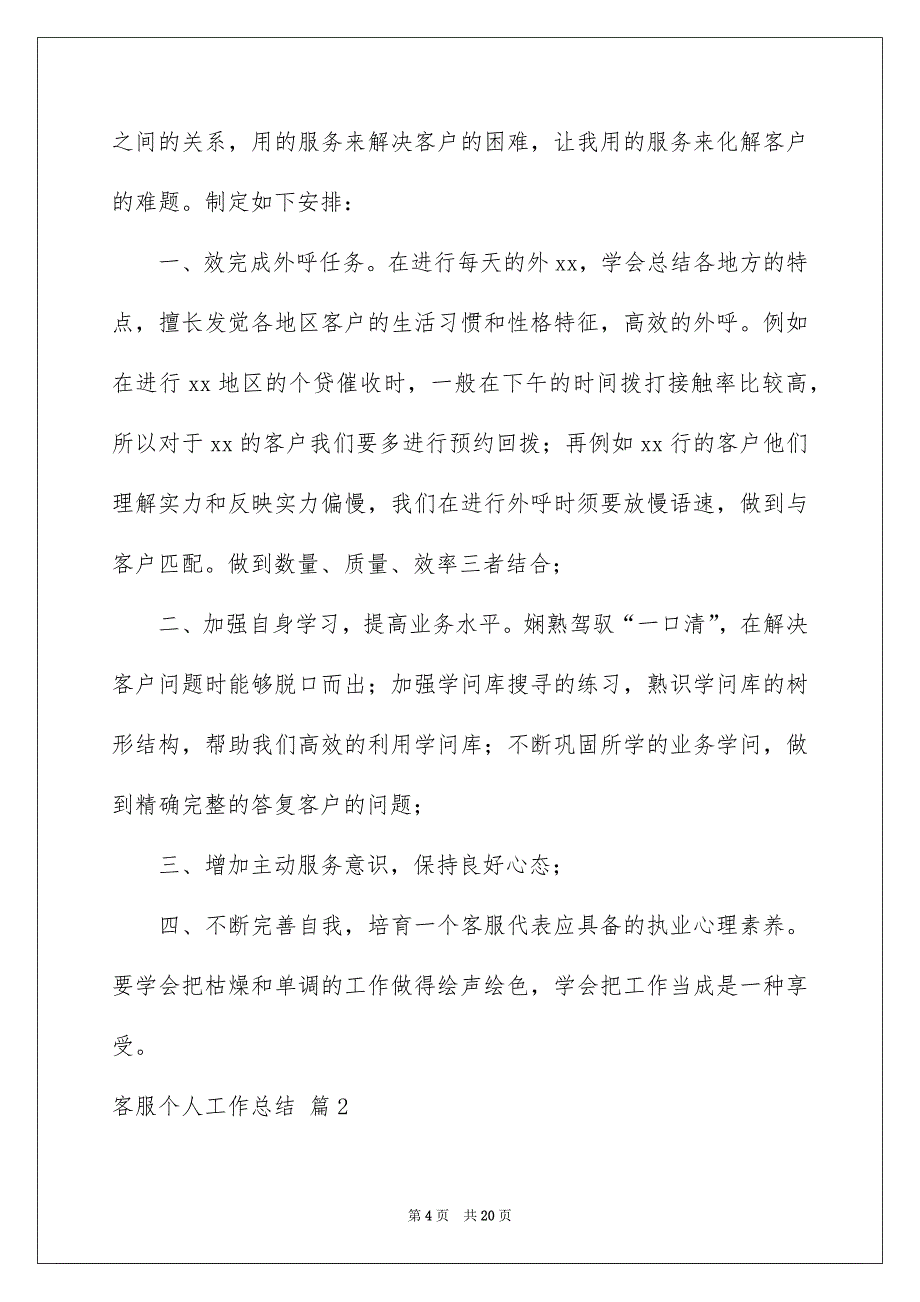 之间的关系，用的服务来解决客户的困难，让我用的服务来化解客户
的难题。制定如下安排：
一、效完成外呼任务。在进行每天的外 xx，学会总结各地方的特
点，擅长发觉各地区客户的生活习惯和性格特征，高效的外呼。例如
在进行 xx 地区的个贷催收时，一般在下午的时间拨打接触率比较高，
所以对于 xx 的客户我们要多进行预约回拨；再例如 xx 行的客户他们
理解实力和反映实力偏慢，我们在进行外呼时须要放慢语速，做到与
客户匹配。做到数量、质量、效率三者结合；
二、加强自身学习，提高业务水平。娴熟驾驭“一口清”，在解决
客户问题时能够脱口而出；加强学问库搜寻的练习，熟识学问库的树
形结构，帮助我们高效的利用学问库；不断巩固所学的业务学问，做
到精确完整的答复客户的问题；
三、增加主动服务意识，保持良好心态；
四、不断完善自我，培育一个客服代表应具备的执业心理素养。
要学会把枯燥和单调的工作做得绘声绘色，学会把工作当成是一种享
受。
客服个人工作总结 篇 2
第 4 页 共 20 页